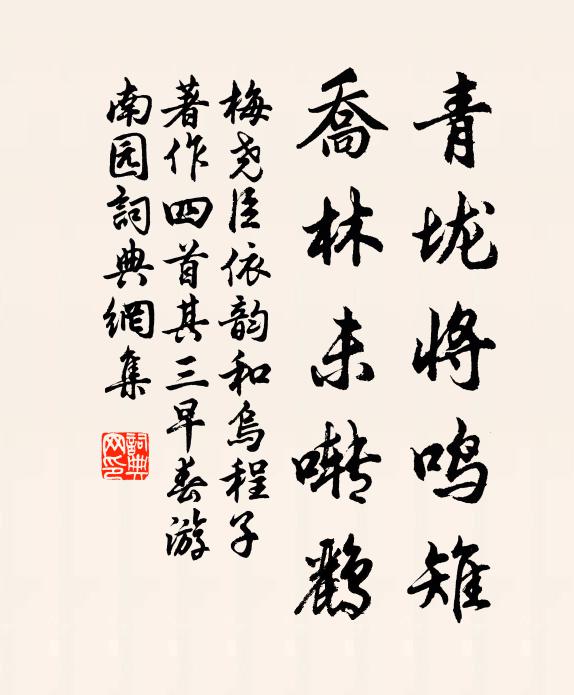 青垅将鸣雉
乔林未啭鹂
梅尧臣依韵和乌程子
著作四首其三早春游
南园詞典網集
詞典网印